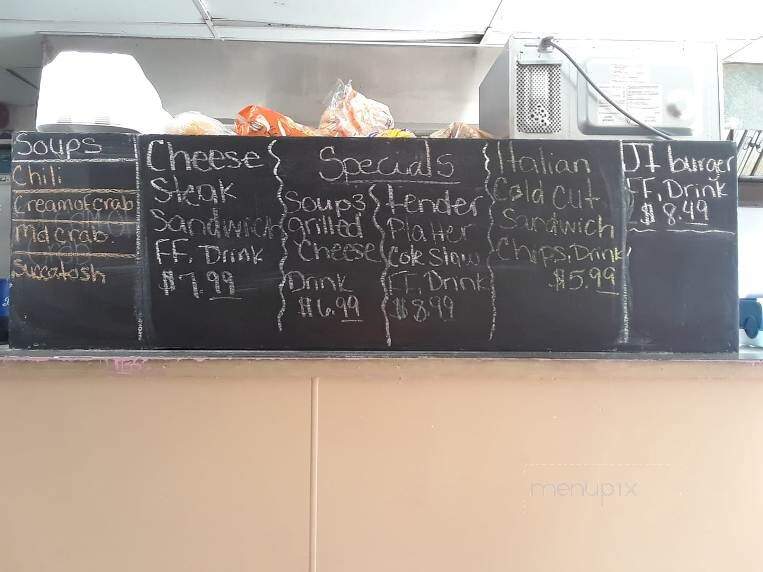 Soups
Chili
Cream of crab
md crab
Succatosh
Cheese
Steak
Sandwich
FF, Drink
$7.99
Specials
Soup 3
grilled
Cheese
Drink
$6.99
tender
Platter
Cole Slaw
FF, Drink
$8.99
Italian
Cold cut
Sandwich
Chips, Drink
$5.99
burger
FF, Drink
$8.49
menupix